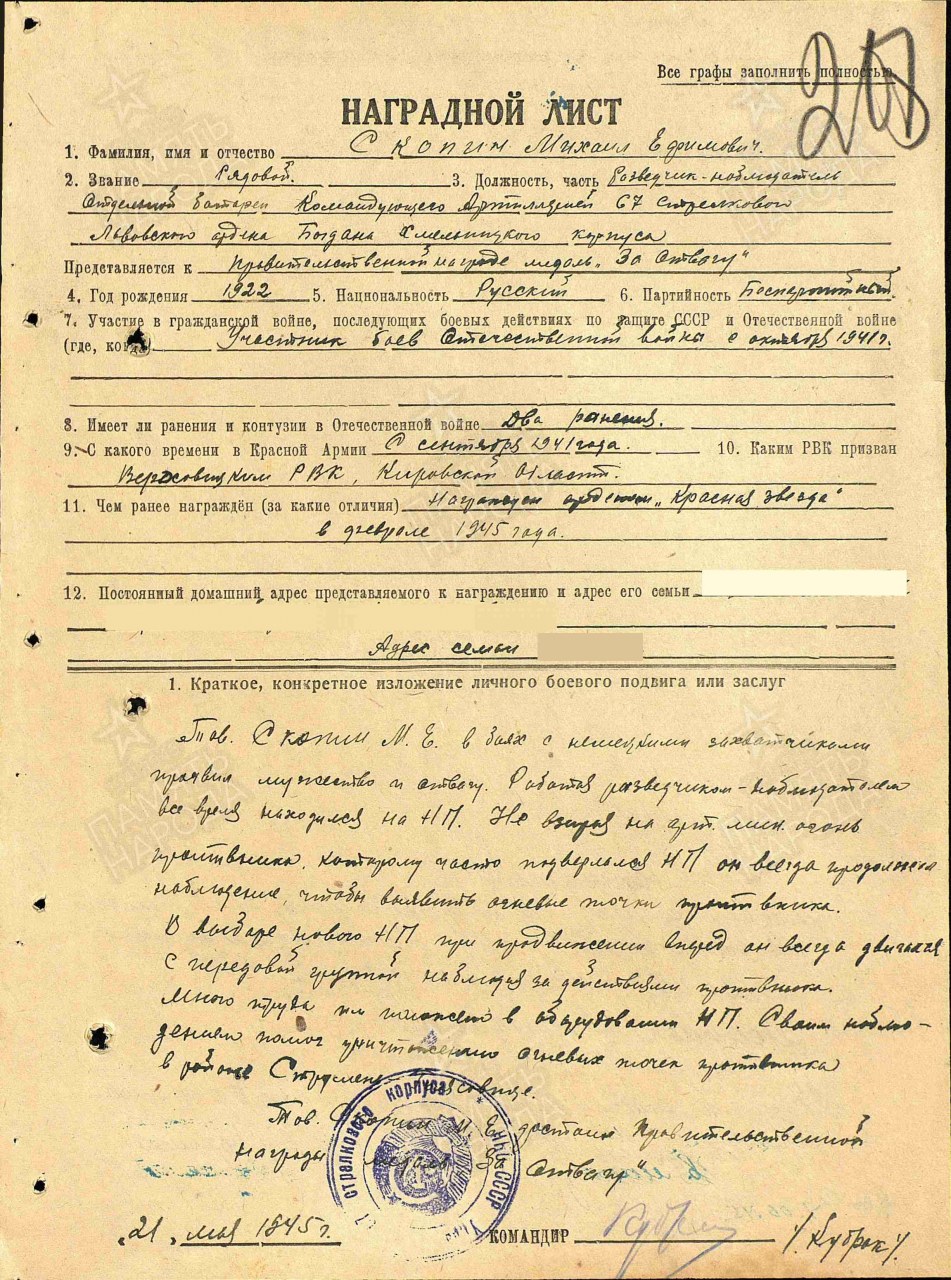 Все графы заполнить полностью
208
НАГРАДНОЙ ЛИСТ
1. Фамилия, имя и отчество Скопин Михаил Ефимович.
2. Звание Рядовой. 3. Должность, часть Разведчик-наблюдатель
Отдельной батареи Командующего Артиллерией 67 Стрелкового
Львовского ордена Богдана Хмельницкого корпуса
Представляется к правительственной награде медаль „За Отвагу“
4. Год рождения 1922 5. Национальность Русский 6. Партийность Беспартийный.
7. Участие в гражданской войне, последующих боевых действиях по защите СССР и Отечественной войне
(где, когда) Участник боев Отечественной войны с октября 1941 г.
8. Имеет ли ранения и контузии в Отечественной войне Два ранения.
9. С какого времени в Красной Армии С сентября 1941 года. 10. Каким РВК призван
РВК, Кировской Области.
11. Чем ранее награждён (за какие отличия) Награжден орденом „Красная звезда“
в феврале 1945 года.
12. Постоянный домашний адрес представляемого к награждению и адрес его семьи
Адрес семьи
1. Краткое, конкретное изложение личного боевого подвига или заслуг
Тов. Скопин М. Е. в боях с немецкими захватчиками
проявил мужество и отвагу. Работая разведчиком-наблюдателем
все время находился на НП. Не взирая на арт. мин. огонь
противника, которому часто подвергался НП он всегда продолжал
наблюдение, чтобы выявить огневые точки противника.
В выборе нового НП при продвижении вперед он всегда двигался
с передовой группой наблюдая за действиями противника.
Много труда им положено в оборудовании НП. Своим наблю-
дением помог уничтожению огневых точек противника
в районе
Тов. Скопин М. Е. достоин Правительственной
Награды медаль „За Отвагу“
стрелкового корпуса * НКО СССР
„21“ мая 1945 г. КОМАНДИР /Кубрак/.
ПАМЯТЬ НАРОДА